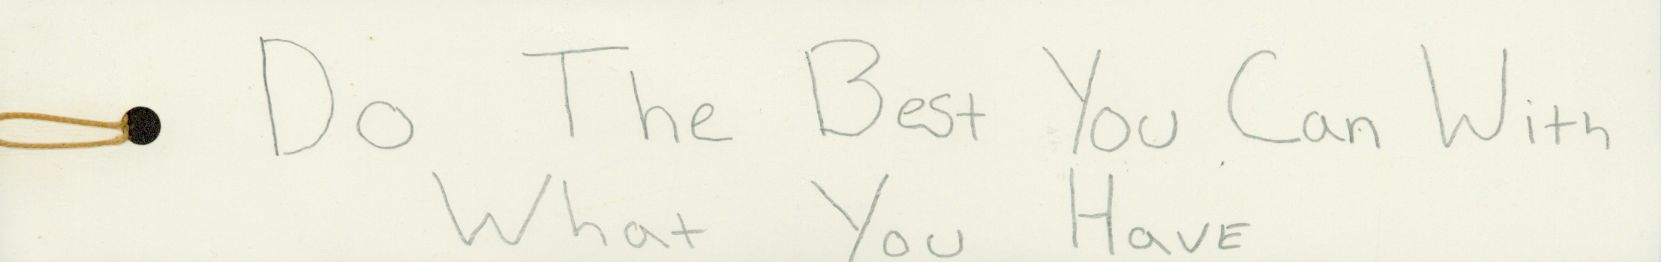 Do The Best You Can With
What You Have